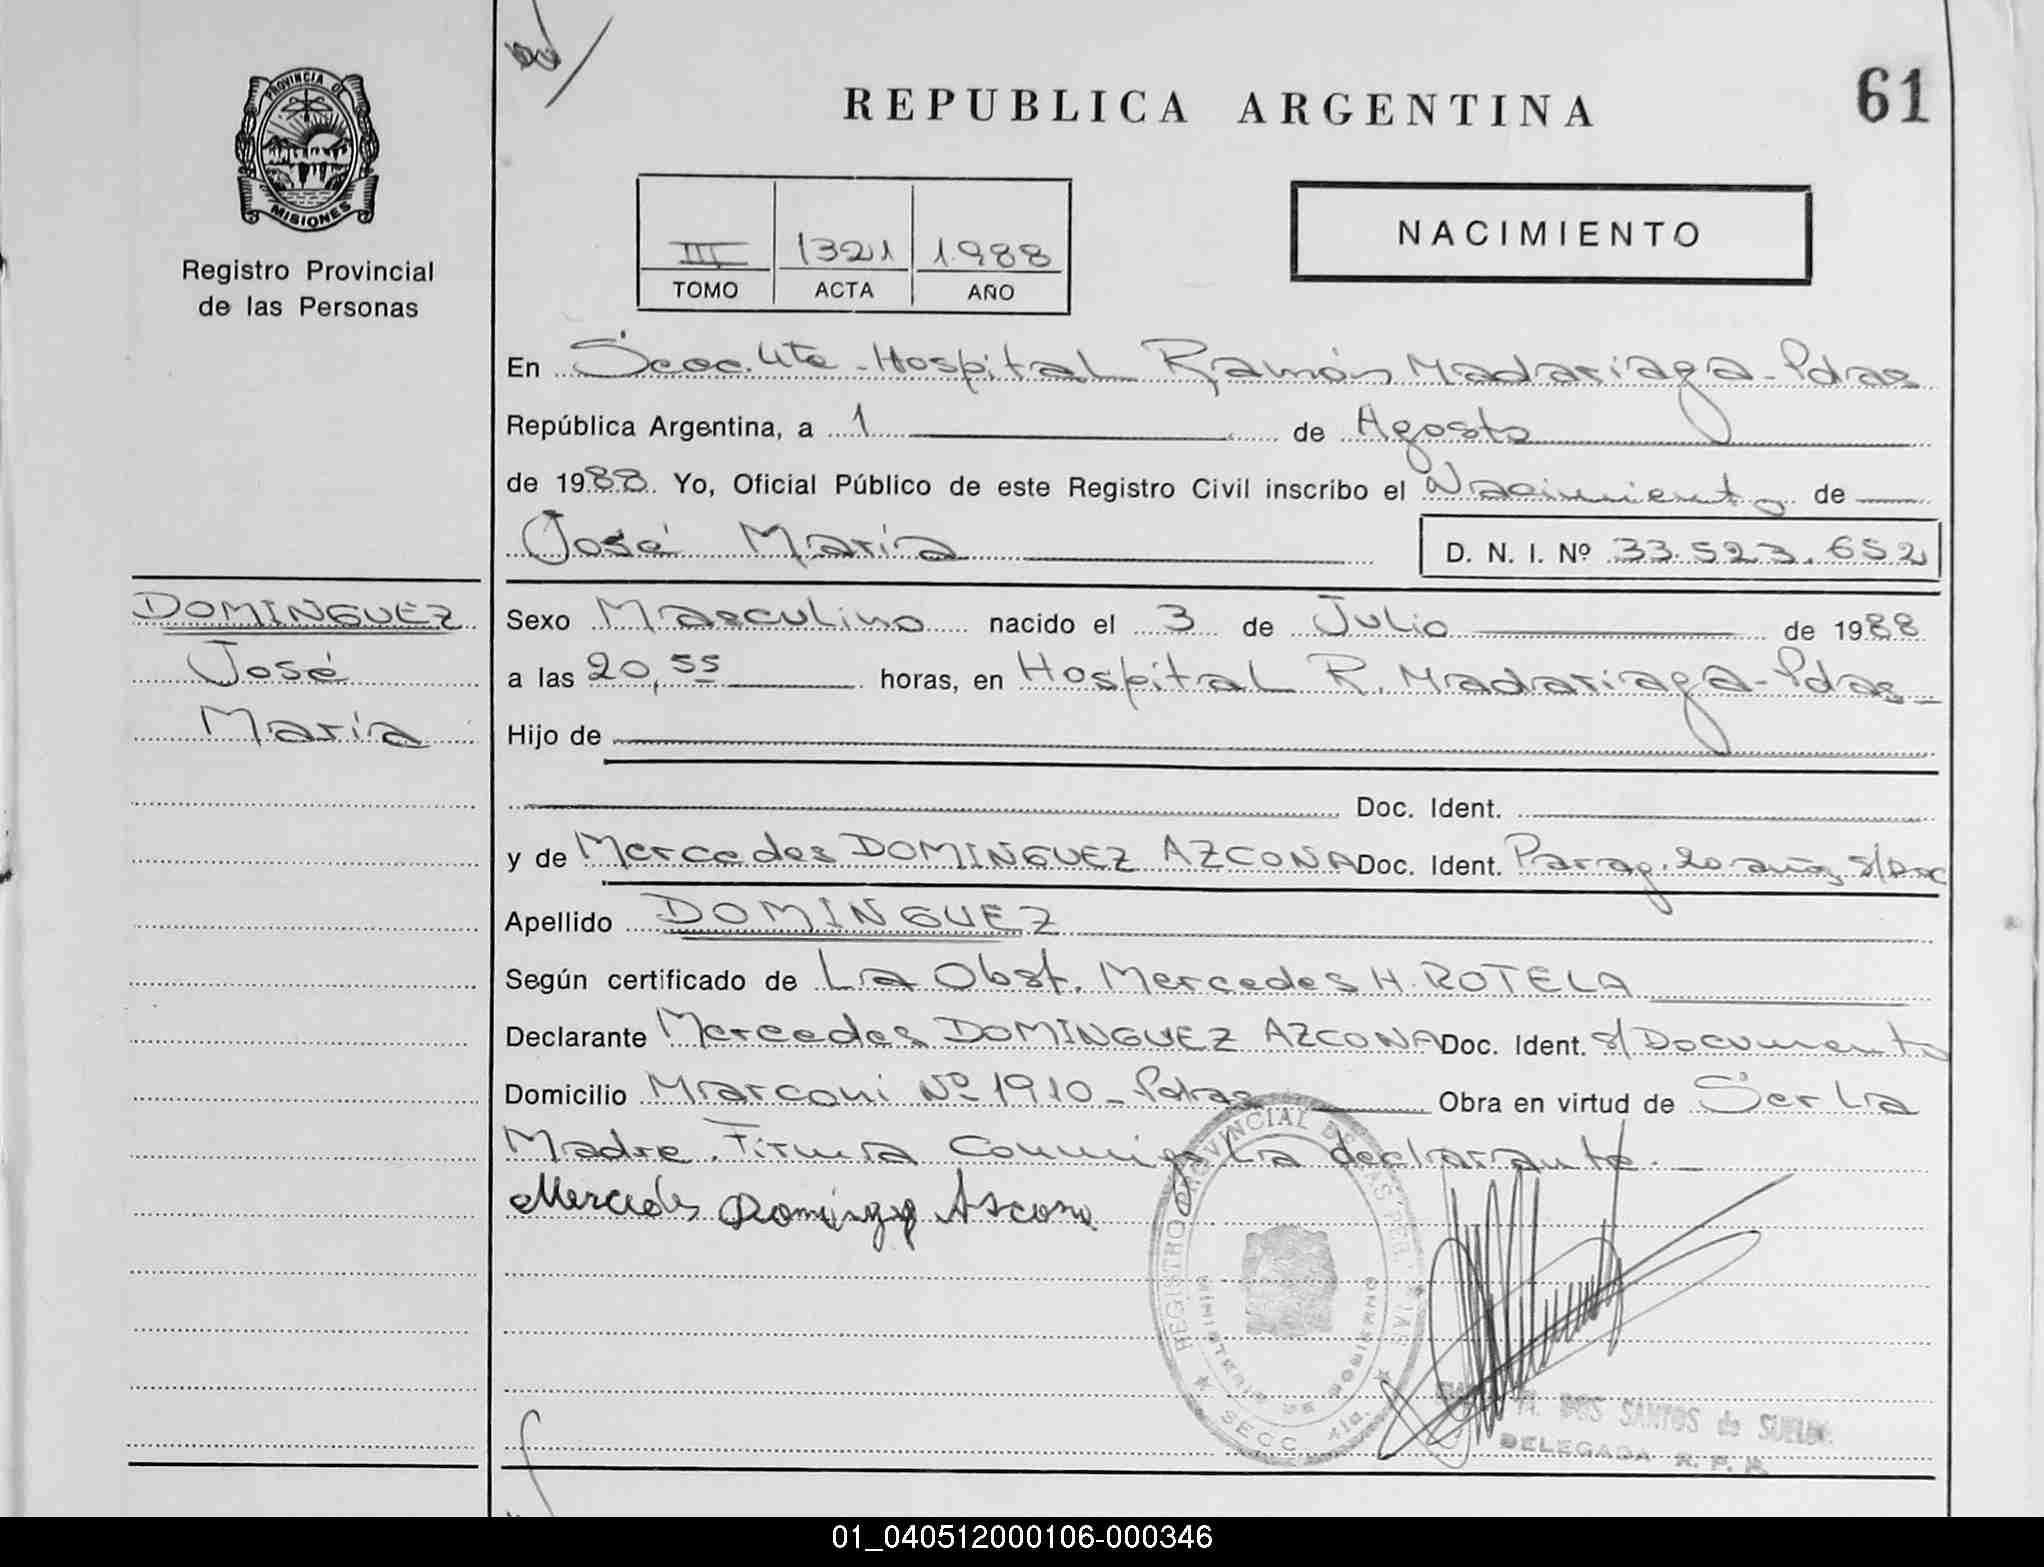 REPUBLICA ARGENTINA
61
PROVINCIA DE
MISIONES
Registro Provincial
de las Personas
III 1321 1.988
TOMO ACTA AÑO
NACIMIENTO
En Secc. 4ta - Hospital Ramón Madariaga - Pdas
República Argentina, a 1 de Agosto
de 1988. Yo, Oficial Público de este Registro Civil inscribo el Nacimiento de
José María D. N. I. Nº 33.523.652
DOMINGUEZ
José
María
Sexo Masculino nacido el 3 de Julio de 1988
a las 20,55 horas, en Hospital R. Madariaga - Pdas
Hijo de
Doc. Ident.
y de Mercedes DOMINGUEZ AZCONA Doc. Ident. Parag. 20 años, s/Doc
Apellido DOMINGUEZ
Según certificado de La Obst. Mercedes H. ROTELA
Declarante Mercedes DOMINGUEZ AZCONA Doc. Ident. s/ Documento
Domicilio Marconi Nº 1910 - Pdas Obra en virtud de Ser La
Madre. Firma Conmigo La declarante.
Mercedes Ascona
REGISTRO PROVINCIAL DE LAS PERSONAS
MINISTERIO DE GOBIERNO
SECC. 4ta.
DOS SANTOS de
DELEGADA R. P. P.
01_040512000106-000346